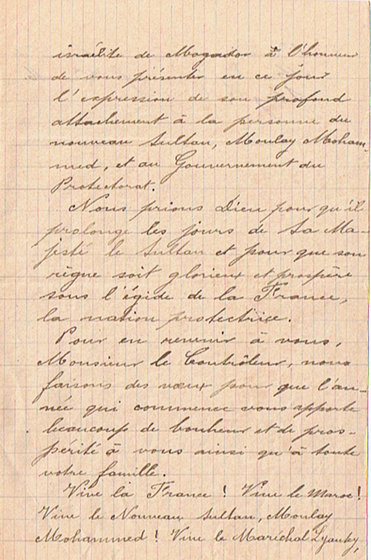 israélite de Mogador a l'honneur
de vous présenter en ce jour
l'expression de son profond
attachement à la personne du
nouveau Sultan, Moulay Moham-
med, et au Gouvernement du
Protectorat.
Nous prions Dieu pour qu'il
prolonge les jours de Sa Ma-
jesté le Sultan et pour que son
règne soit glorieux et prospère
sous l'égide de la France,
la nation protectrice.
Pour en revenir à vous,
Monsieur le Contrôleur, nous
faisons des vœux pour que l'an-
née qui commence vous apporte
beaucoup de bonheur et de pros-
périté à vous ainsi qu'à toute
votre famille.
Vive la France ! Vive le Maroc!
Vive le Nouveau Sultan, Moulay
Mohammed ! Vive le Maréchal Lyautey,